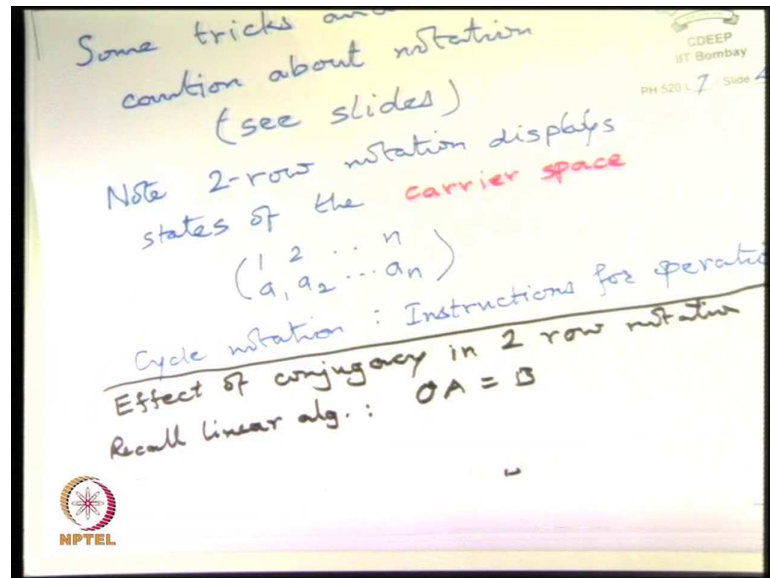 Some tricks and
caution about notation
(see slides)
CDEEP
IIT Bombay
PH 520 L 7 Slide 4
Note 2-row notation displays
states of the carrier space
(1 2 .. n
a1 a2 ... an)
Cycle notation : Instructions for operatio
Effect of conjugacy in 2 row notation
Recall linear alg. : OA = B
NPTEL